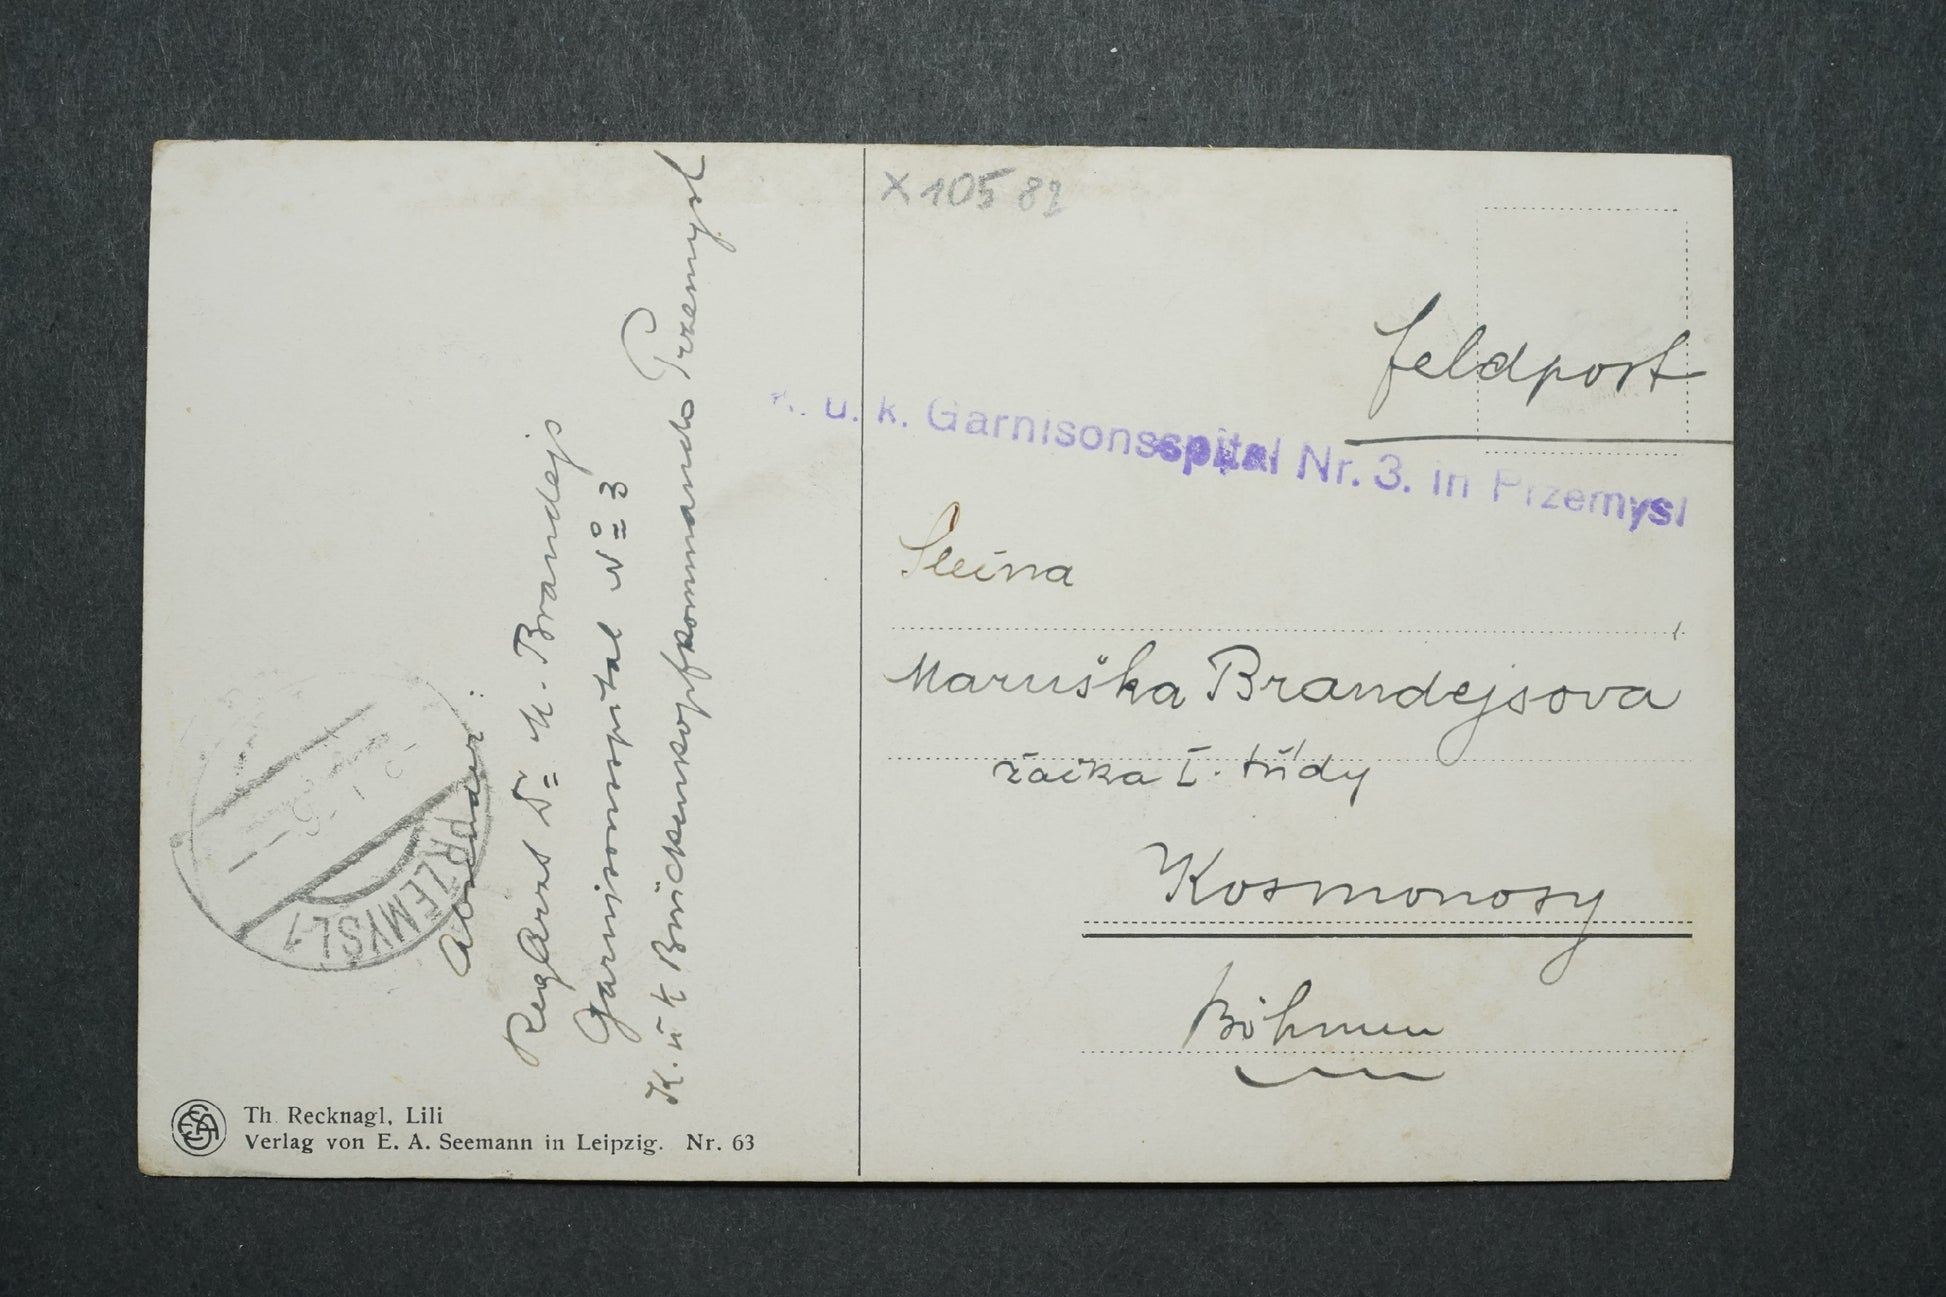 Absender:
RegArzt Dr M. Brandejs
Garnisonsspital No 3
K. u k Brückenkopfkommando Przemysl
PRZEMYSL 1
Th. Recknagl, Lili
Verlag von E. A. Seemann in Leipzig. Nr. 63
X 105 82
Feldpost
k. u. k. Garnisonsspital Nr. 3. in Przemysl
Slečna
Maruška Brandejsová
žačka I. třídy
Kosmonosy
Böhmen